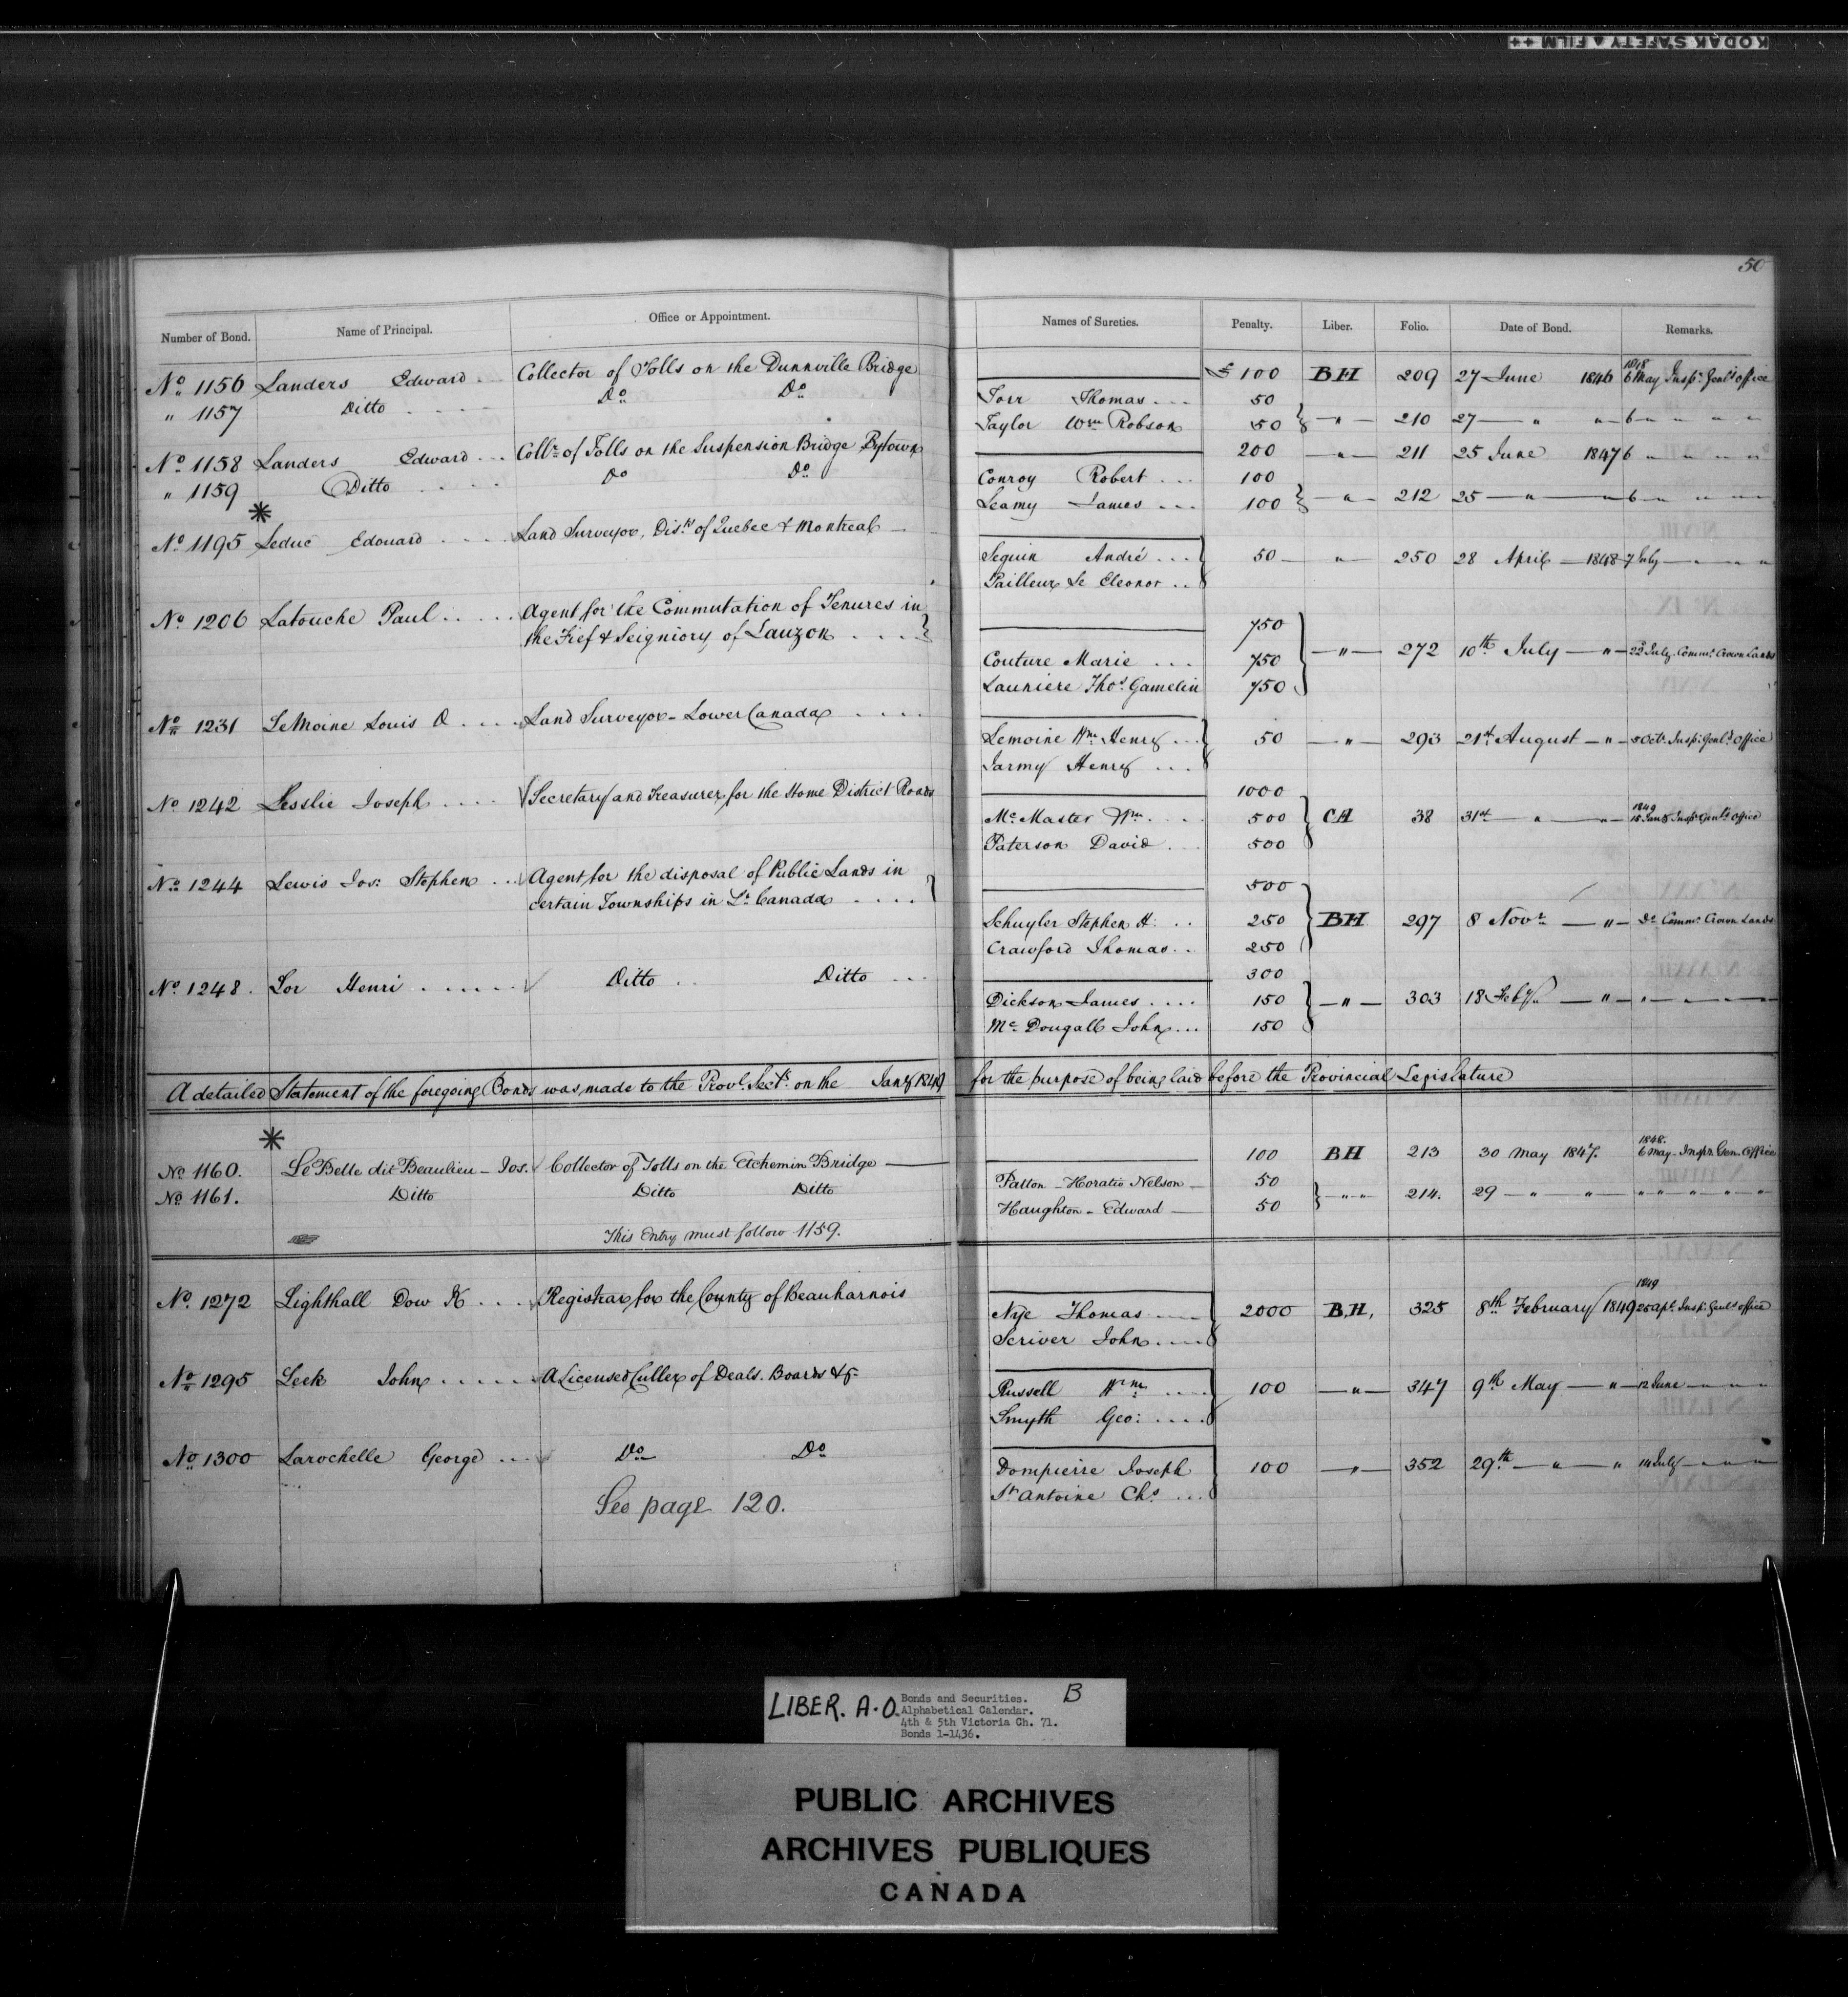 KODAK SAFETY FILM ++
50
Number of Bond. Name of Principal. Office or Appointment. Names of Sureties. Penalty. Liber. Folio. Date of Bond. Remarks.
No 1156 Landers Edward Collector of Tolls on the Dunnville Bridge £ 100 BH 209 27 June 1846 1848 6 May Inspr Genl's office
" 1157 Ditto Do Do Torr Thomas 50
Taylor Wm Robson 50 " 210 27 " " 6 " " " "
No 1158 Landers Edward Collr of Tolls on the Suspension Bridge Bytown 200 " 211 25 June 1847 6 " " " "
" 1159 Ditto Do Do Conroy Robert 100
Leamy James 100 " 212 25 " " 6 " " " "
*
No 1195 Leduc Edouard Land Surveyor, Dists of Quebec & Montreal Seguin André 50 " 250 28 April 1848 7 July " " "
Pailleur Le Eleonor
No 1206 Latouche Paul Agent for the Commutation of Tenures in 750
the Fief & Seigniory of Lauzon Couture Marie 750 " 272 10th July " 22 July Commr Crown Lands
Launiere Thos Gamelin 750
No 1231 LeMoine Louis A Land Surveyor - Lower Canada Lemoine Wm Henry 50 " 293 21st August " 5 Oct. Inspr Genl's office
Jarmy Henry
No 1242 Lesslie Joseph Secretary and Treasurer for the Home District Roads 1000
McMaster Wm 500 CA 38 31st " " 1849 15 Jany Inspr Genl's Office
Paterson David 500
No 1244 Lewis Jos: Stephen Agent for the disposal of Public Lands in 500
certain Townships in Lr Canada Schuyler Stephen H: 250 BH 297 8 Novr " Do Commr Crown Lands
Crawford Thomas 250
No 1248. Lor Henri Ditto Ditto 300
Dickson James 150 " 303 18 Feby. " " " "
McDougall John 150
A detailed Statement of the foregoing Bonds was made to the Provl Secty on the Jany 1849 for the purpose of being laid before the Provincial Legislature
*
No 1160. LeBelle dit Beaulieu - Jos. Collector of Tolls on the Etchemin Bridge 100 BH 213 30 May 1847. 1848. 6 May Inspr. Gen. Office
No 1161. Ditto Ditto Ditto Patton - Horatio Nelson 50
Haughton - Edward 50 " " 214. 29 " " " " " " " "
This Entry must follow 1159.
No. 1272 Lighthall Dow K Registrar for the County of Beauharnois Nye Thomas 2000 B.H. 325 8th February 1849 1849 25 Apl Inspr Genl's office
Scriver John
No 1295 Leek John A Licensed Culler of Deals. Boards &c Russell Wm 100 " 347 9th May " 12 June " " "
Smyth Geo:
No 1300 Larochelle George Do Do Dompierre Joseph 100 " 352 29th " " 14 July " " "
St Antoine Chs
See page 120.
LIBER. A.O. Bonds and Securities. B
Alphabetical Calendar.
4th & 5th Victoria Ch. 71.
Bonds 1-1436.
PUBLIC ARCHIVES
ARCHIVES PUBLIQUES
CANADA